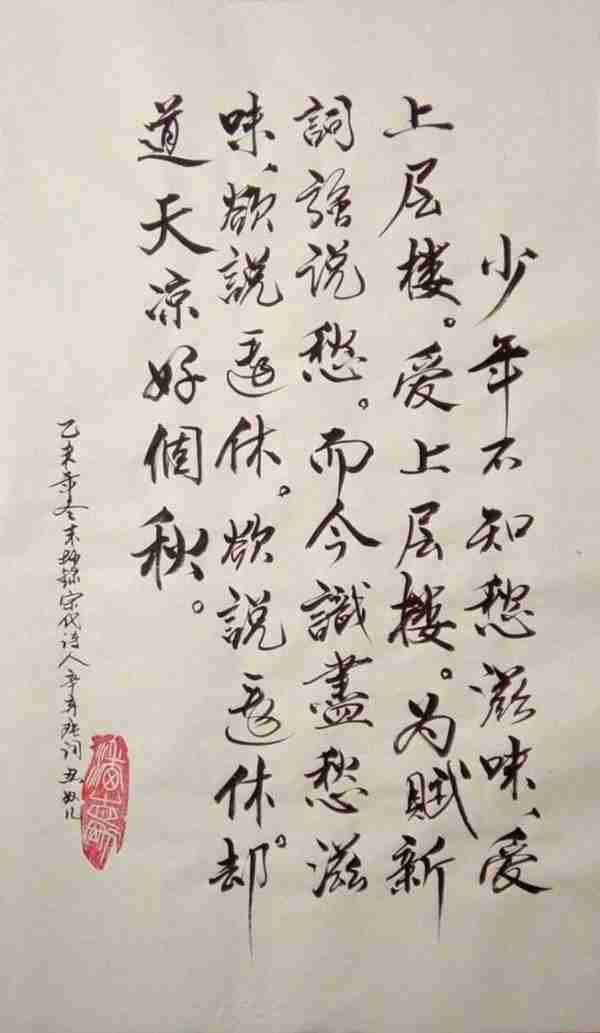 少年不知愁滋味、爱
上层楼。爱上层楼。为赋新
詞强说愁。而今識盡愁滋
味、欲說還休。欲說還休。却
道天凉好個秋。
乙未年冬末抄錄宋代诗人辛弃疾词丑奴儿